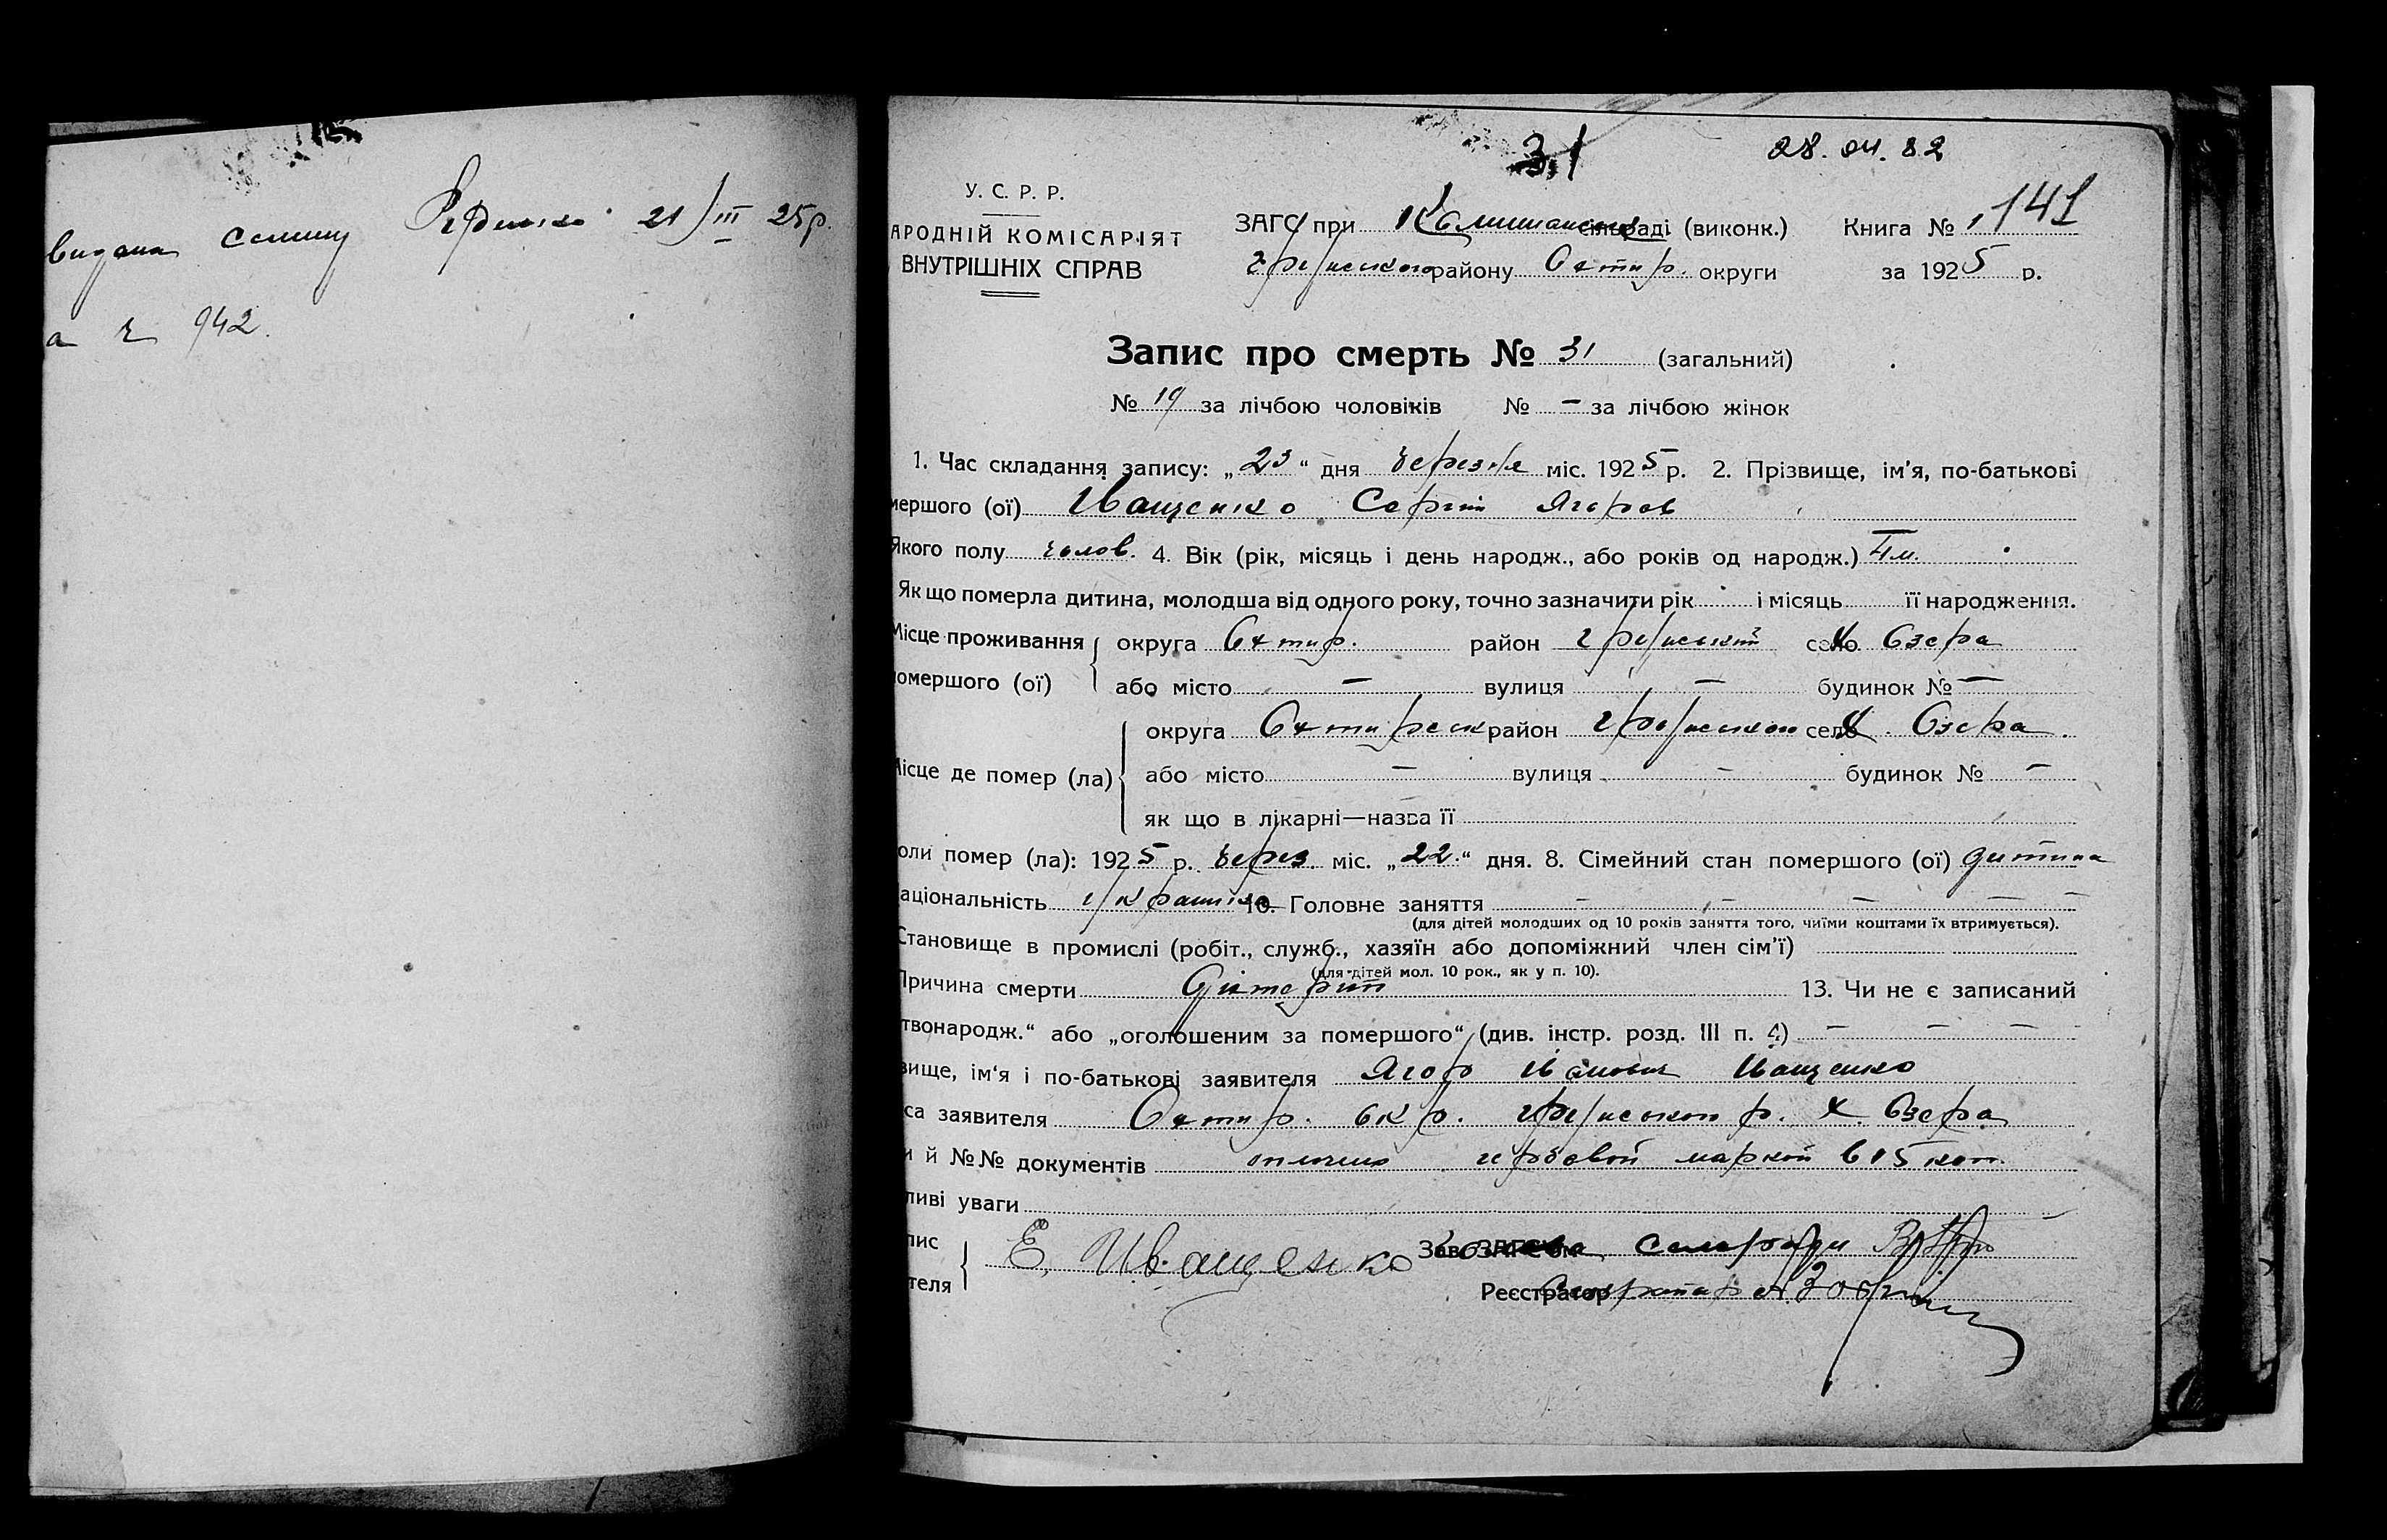 видана селину 21/III 25р.
а 942.
31
28.04.82
У. С. Р. Р.
АРОДНІЙ КОМІСАРІЯТ
ВНУТРІШНІХ СПРАВ
ЗАГС при сільраді (виконк.) Книга № 141
району Охтир. округи за 1925 р.
Запис про смерть № 31 (загальний)
№ 19 за лічбою чоловіків № — за лічбою жінок
1. Час складання запису: „23“ дня березня міс. 1925 р. 2. Прізвище, ім'я, по-батькові
мершого (ої) Іващенко Сергій Ягоров
Якого полу чолов. 4. Вік (рік, місяць і день народж., або років од народж.)
Як що померла дитина, молодша від одного року, точно зазначити рік і місяць її народження.
Місце проживання округа Охтир. район село Озера
омершого (ої) або місто — вулиця — будинок № —
округа Охтирськ район село х. Озера.
Місце де помер (ла) або місто — вулиця — будинок № —
як що в лікарні—назва її
оли помер (ла): 1925 р. берез. міс. „22“ дня. 8. Сімейний стан помершого (ої) дитина
аціональність 10. Головне заняття — — — — —
(для дітей молодших од 10 років заняття того, чиїми коштами їх втримується).
Становище в промислі (робіт., служб., хазяїн або допоміжний член сім'ї)
(для дітей мол. 10 рок., як у п. 10).
Причина смерти Діфтеріт 13. Чи не є записаний
твонародж.“ або „оголошеним за помершого“ (див. інстр. розд. III п. 4) — — —
вище, ім'я і по-батькові заявителя Ягор Іванович Іващенко
са заявителя Охтир. окр. р. х. Озера
и й №№ документів оплачено гербовой маркой в 15 коп.
ливі уваги
пис Е. Иващенко Зав. ЗАГС'ом Сельради
теля Реєстратор Секретар